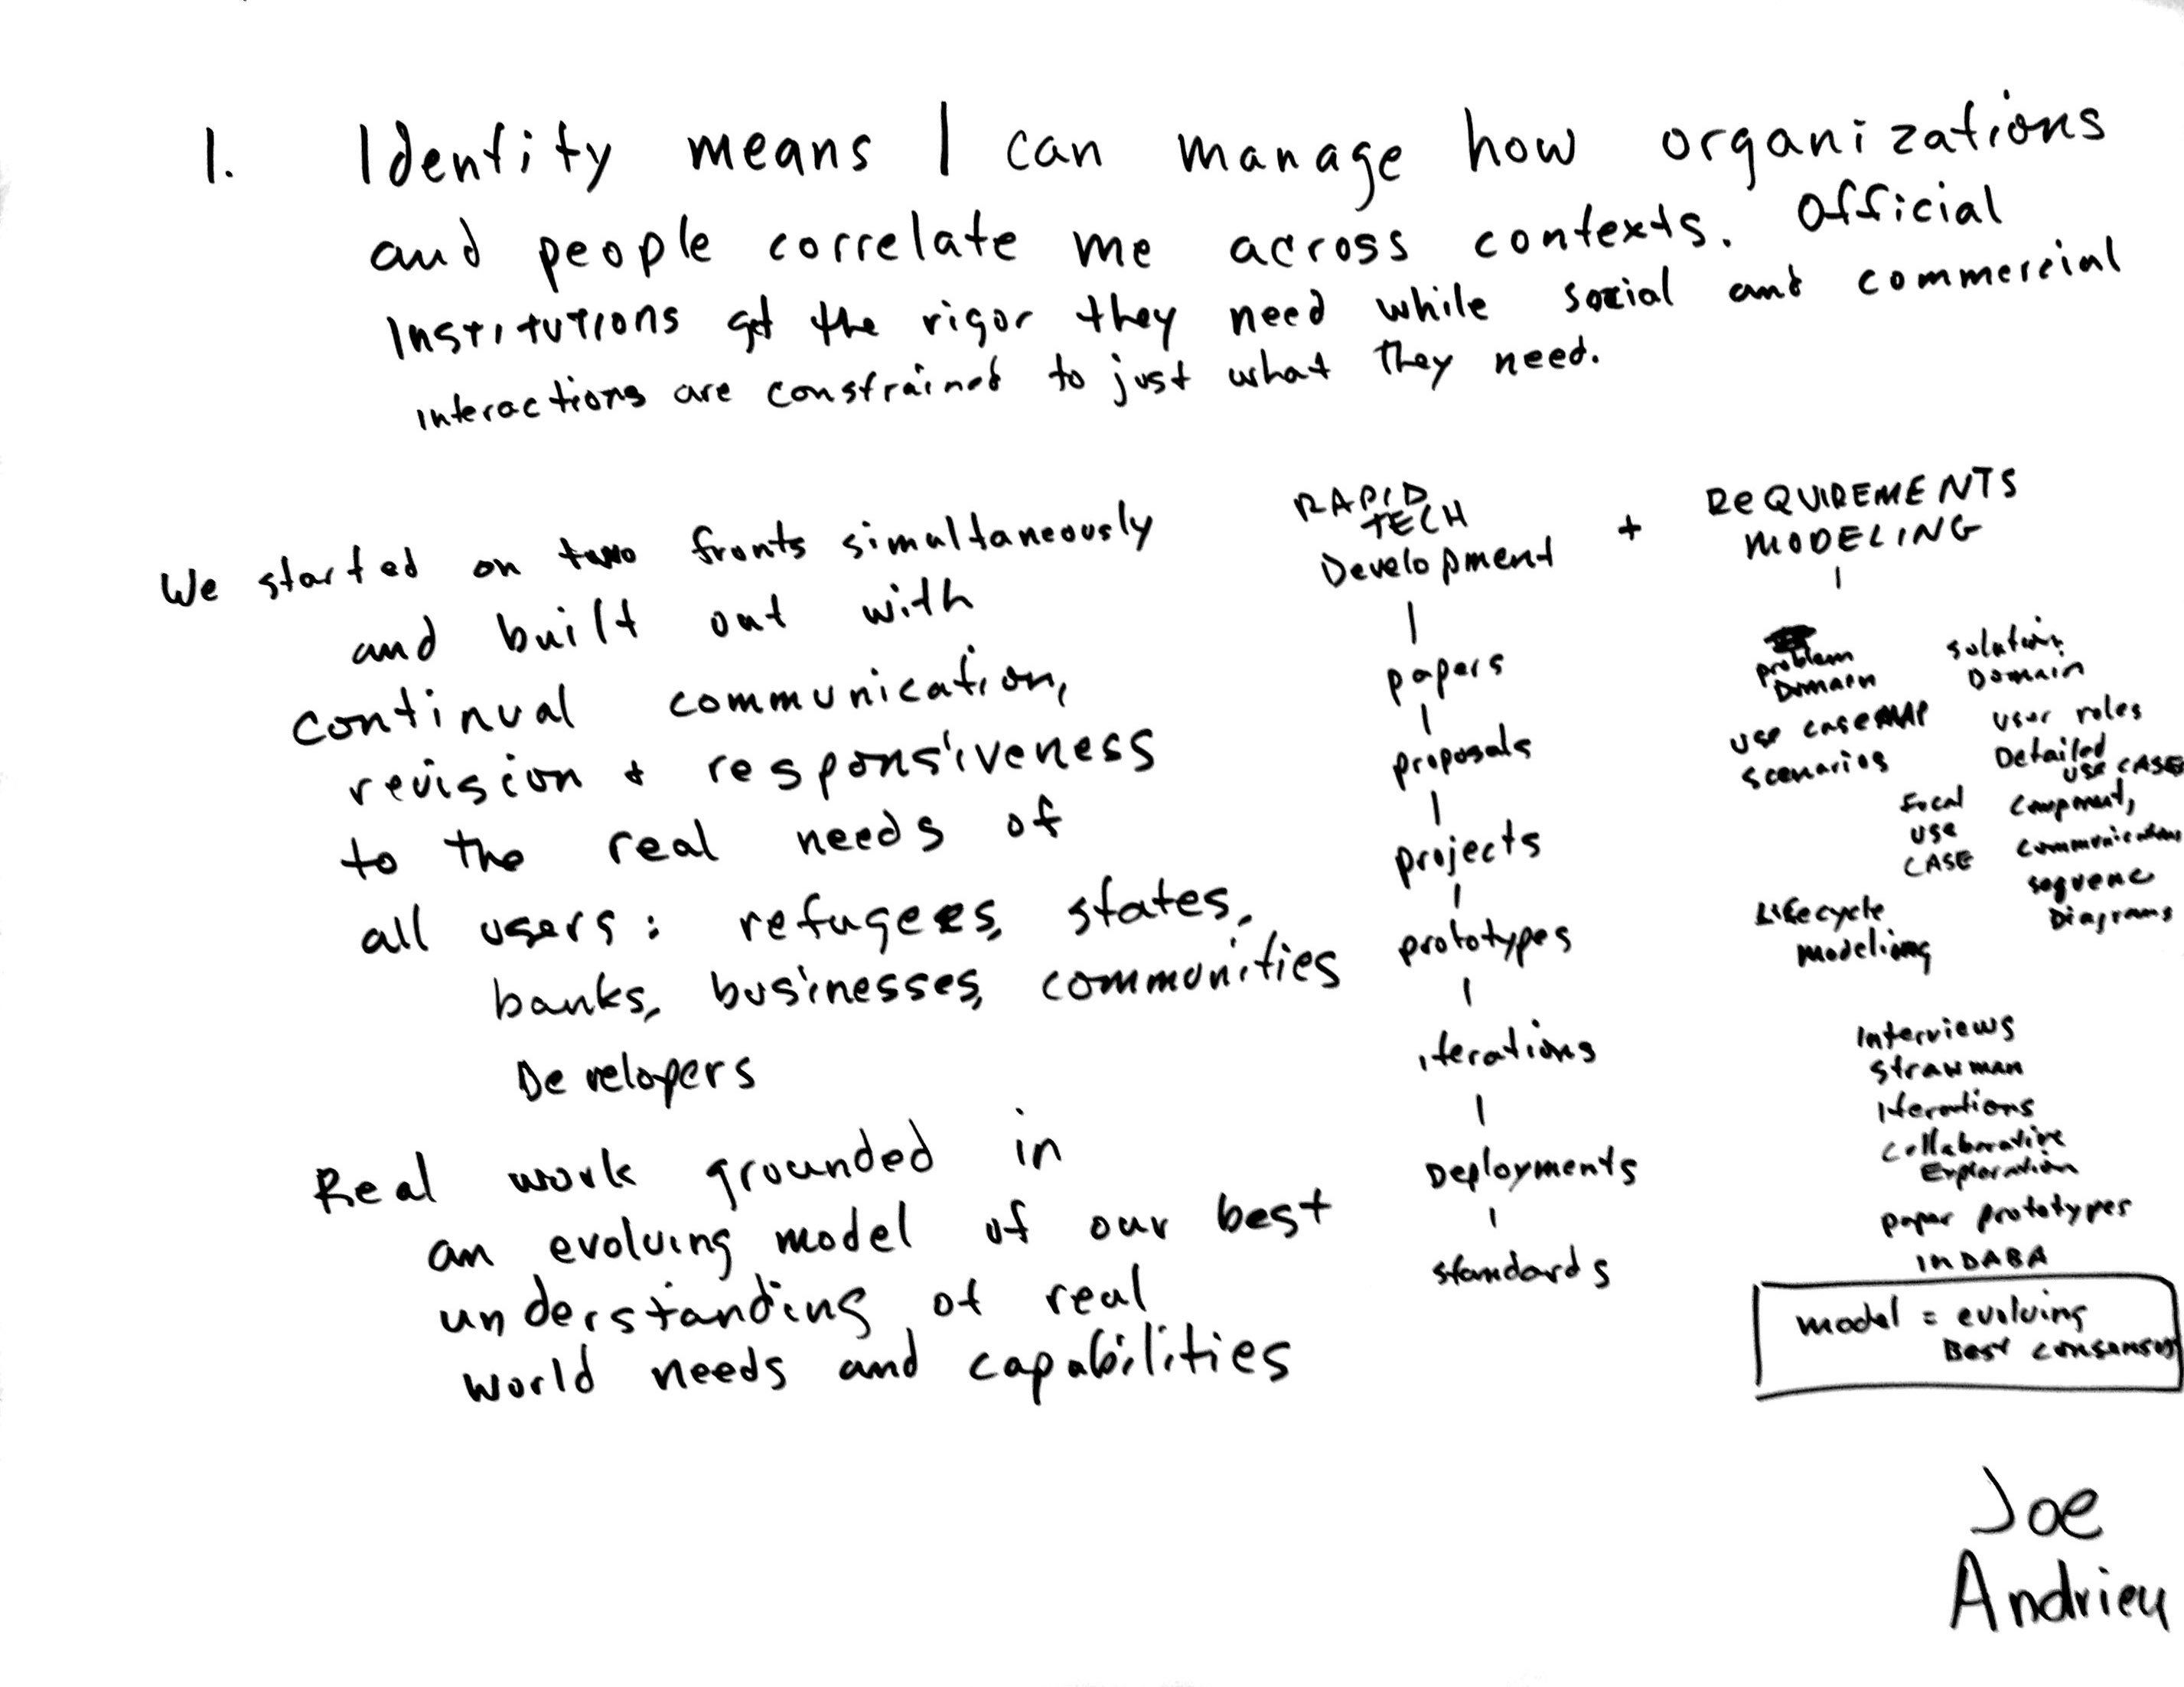 1. Identity means I can manage how organizations
and people correlate me across contexts. Official
Institutions get the rigor they need while social and commercial
interactions are constrained to just what they need.
We started on two fronts simultaneously
and built out with
continual communication,
revision + responsiveness
to the real needs of
all users: refugees, states,
banks, businesses, communities
Developers
Real work grounded in
an evolving model of our best
understanding of real
world needs and capabilities
RAPID
TECH
Development
papers
proposals
projects
prototypes
iterations
Deployments
standards
+
REQUIREMENTS
MODELING
problem
Domain
use case MAP
scenarios
Focal
use
CASE
Lifecycle
modeling
solution
Domain
user roles
Detailed
use CASE
component,
communication
sequence
Diagrams
Interviews
strawman
Iterations
collaborative
Exploration
paper prototypes
INDABA
model = evolving
Best consensus
Joe
Andrieu